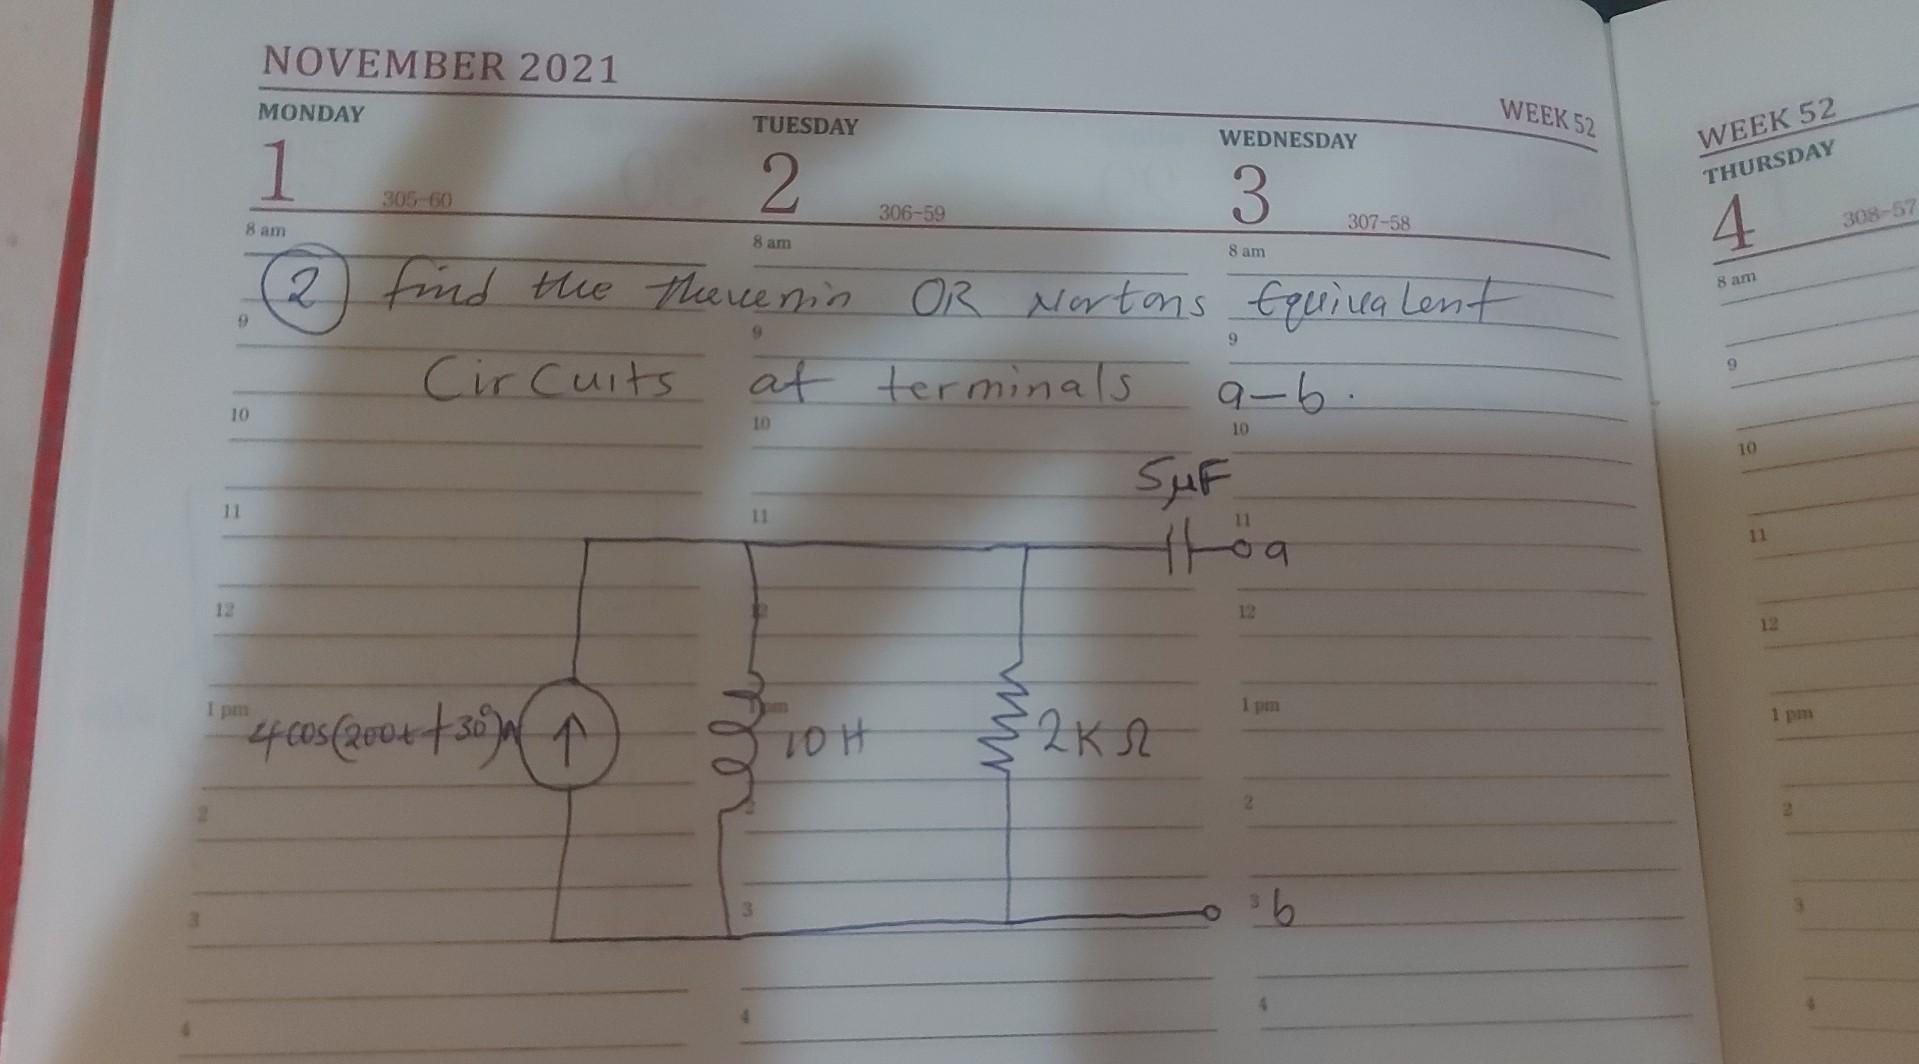 NOVEMBER 2021
WEEK 52
MONDAY
1
305-60
TUESDAY
2
306-59
WEDNESDAY
3
307-58
WEEK 52
THURSDAY
4
308-57
8 am
8 am
8 am
8 am
② find the thevenin OR Nortons Equivalent
9
9
9
9
Circuits at terminals a-b.
10
10
10
10
5μF
11
11
11
11
a
12
12
12
12
1 pm
pm
1 pm
1 pm
4cos(200t+30°)A
10H
2KΩ
2
2
2
2
3
3
3
3
b
4
4
4
4